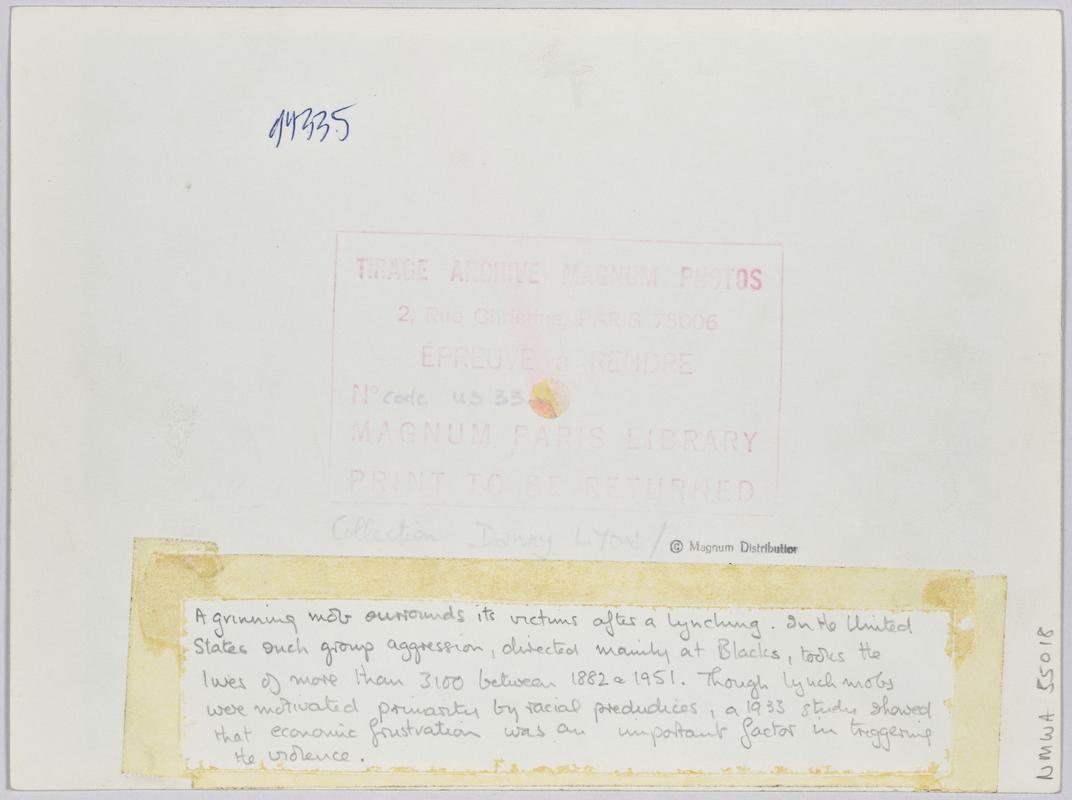 94335
TIRAGE ARCHIVE MAGNUM PHOTOS
2, Rue Christine, PARIS 75006
EPREUVE à RENDRE
N° code US 33
MAGNUM PARIS LIBRARY
PRINT TO BE RETURNED
Collection Danny LYON / © Magnum Distribution
A grinning mob surrounds its victims after a lynching. In the United
States such group aggression, directed mainly at Blacks, tooks the
lives of more than 3100 between 1882 a 1951. Though lynch mobs
were motivated primarily by racial predudices, a 1933 study showed
that economic frustration was an important factor in triggering
the violence.
NMWA 55018